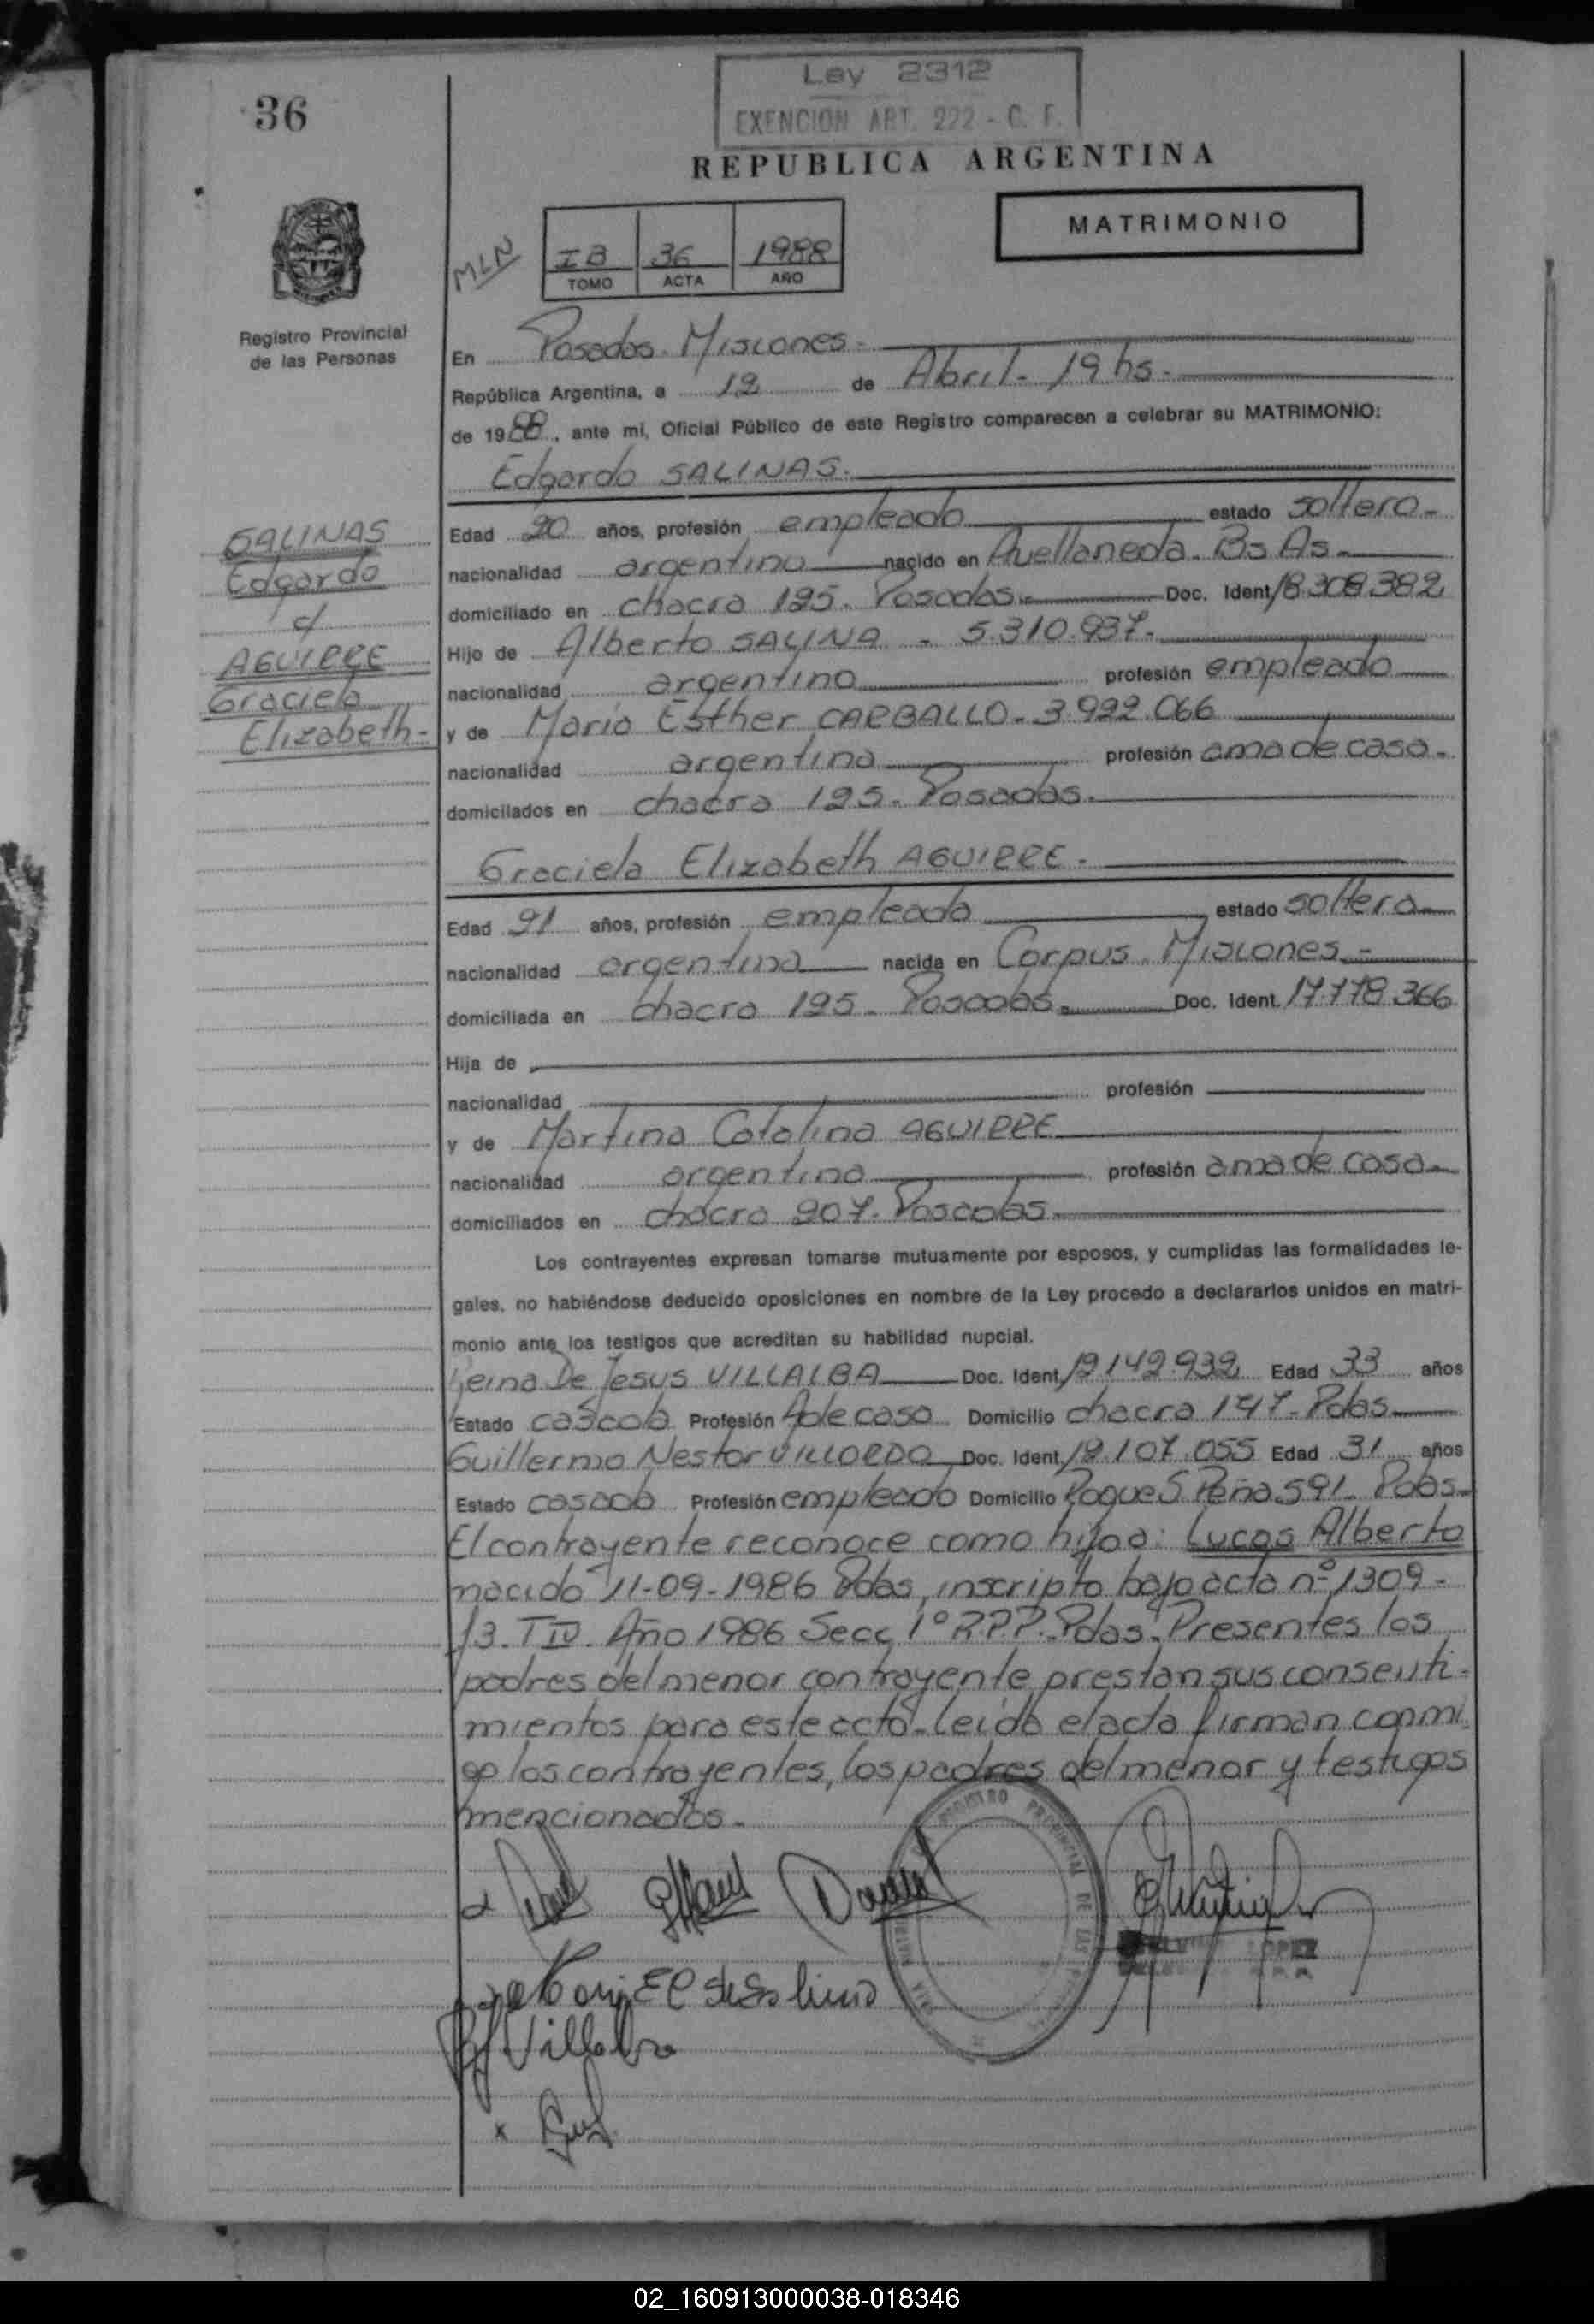 Ley 2312
EXENCION ART. 222 - C. F.
36
REPUBLICA ARGENTINA
MATRIMONIO
MLN
IB 36 1988
TOMO ACTA AÑO
Registro Provincial
de las Personas
En Posadas. Misiones.
República Argentina, a 12 de Abril - 19 hs.
de 1988, ante mi, Oficial Público de este Registro comparecen a celebrar su MATRIMONIO:
Edgardo SALINAS.
SALINAS
Edgardo
c/
AGUIRRE
Graciela
Elizabeth-
Edad 20 años, profesión empleado estado soltero-
nacionalidad argentino nacido en Avellaneda. Bs As.
domiciliado en chacra 125. Posadas. Doc. Ident. 18.308.382
Hijo de Alberto SALINA - 5.310.937-
nacionalidad argentino profesión empleado
y de María Esther CARBALLO - 3.922.066
nacionalidad argentina profesión ama de casa.
domiciliados en chacra 125. Posadas.
Graciela Elizabeth AGUIRRE.
Edad 21 años, profesión empleada estado soltera
nacionalidad argentina nacida en Corpus. Misiones.
domiciliada en chacra 125. Posadas. Doc. Ident. 17.778.366
Hija de
nacionalidad profesión
y de Martina Catalina AGUIRRE
nacionalidad argentina profesión ama de casa.
domiciliados en chacra 207. Posadas.
Los contrayentes expresan tomarse mutuamente por esposos, y cumplidas las formalidades le-
gales, no habiéndose deducido oposiciones en nombre de la Ley procedo a declararlos unidos en matri-
monio ante los testigos que acreditan su habilidad nupcial.
Reina De Jesus VILLALBA Doc. Ident. 12.142.932 Edad 33 años
Estado casada Profesión A de casa Domicilio chacra 147-Pdas
Guillermo Nestor VILLORDO Doc. Ident. 12.107.055 Edad 31 años
Estado casado Profesión empleado Domicilio Roque S. Peña 591 Pdas.
El contrayente reconoce como hijo a: Lucas Alberto
nacido 11-09-1986 Pdas, inscripto bajo acta nº 1309-
13. T IV. Año 1986 Secc 1º R.P.P. Pdas. Presentes los
padres del menor contrayente prestan sus consenti-
mientos para este acto. Leída el acta firman conmi
go los contrayentes, los padres del menor y testigos
mencionados.
REGISTRO PROVINCIAL DE LAS
LOPEZ
Villalba
02_160913000038-018346